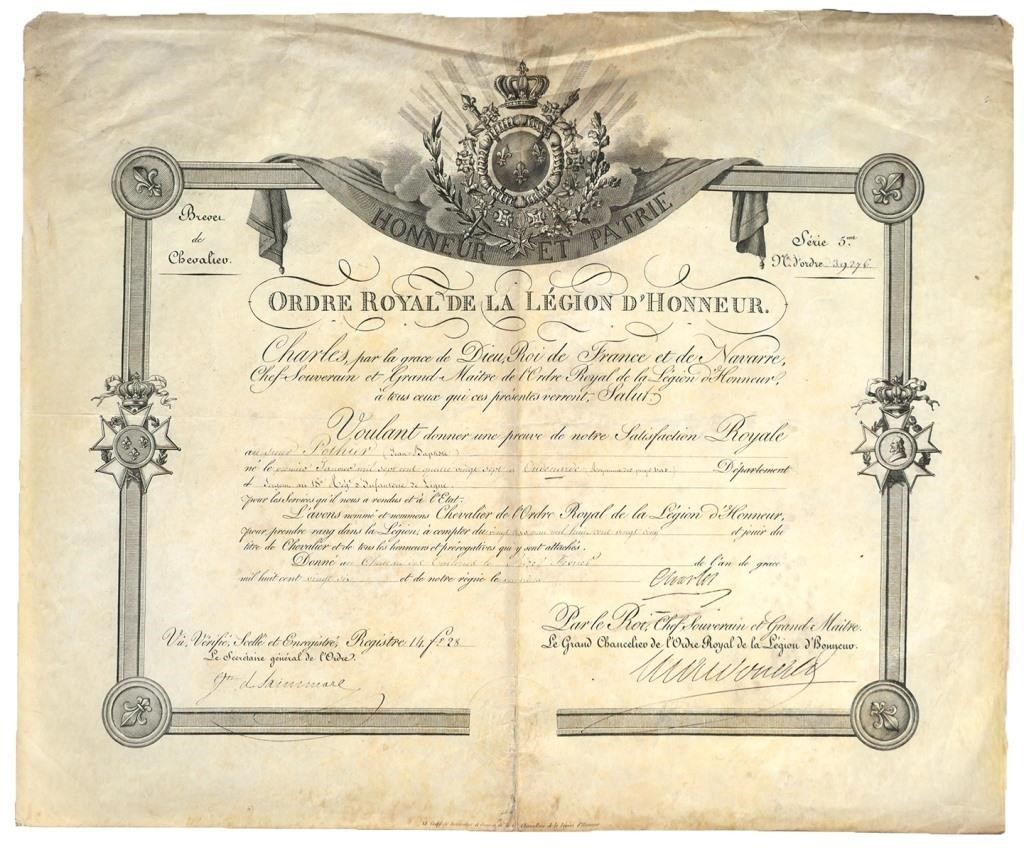 HONNEUR ET PATRIE
Brevet
de
Chevalier.
Série 5.me
N.o d'ordre 39276
ORDRE ROYAL DE LA LÉGION D'HONNEUR.
Charles, par la grace de Dieu, Roi de France et de Navarre,
Chef Souverain et Grand Maître de l'Ordre Royal de la Légion d'Honneur,
à tous ceux qui ces présentes verront, Salut.
Voulant donner une preuve de notre Satisfaction Royale
au sieur Pothier (Jean Baptiste)
né le premier Janvier mil sept cent quatre vingt sept à Département
et Sergent au 18e Régt d'Infanterie de Ligne
pour les Services qu'il nous a rendus et à l'Etat.
L'avons nommé et nommons Chevalier de l'Ordre Royal de la Légion d'Honneur,
pour prendre rang dans la Légion, à compter du mil huit cent vingt cinq et jouir du
titre de Chevalier et de tous les honneurs et prérogatives qui y sont attachés.
Donné au Château des Tuileries le de l'an de grace
mil huit cent vingt six et de notre règne le
Charles
Par le Roi, Chef Souverain et Grand Maître.
Le Grand Chancelier de l'Ordre Royal de la Légion d'Honneur.
Vu, Vérifié, Scellé et Enregistré, Registre 14, f.o 28
Le Secrétaire général de l'Ordre.